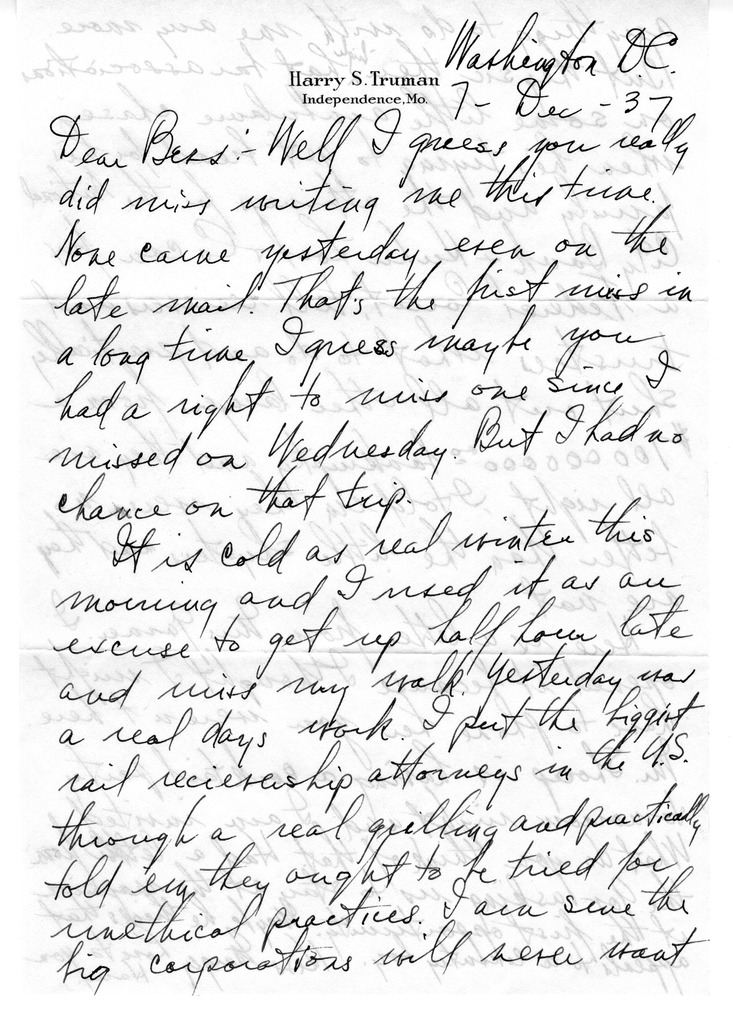 Washington D.C.
Harry S. Truman
Independence, Mo.
7 - Dec - 37
Dear Bess :- Well I guess you really
did miss writing me this time.
None came yesterday even on the
late mail. That's the first miss in
a long time. I guess maybe you
had a right to miss one since I
missed on Wednesday. But I had no
chance on that trip.
It is cold as real winter this
morning and I used it as an
excuse to get up half hour late
and miss my walk. Yesterday was
a real days work. I put the biggest
rail recievership attorneys in the U.S.
through a real grilling and practically
told em they ought to be tried for
unethical practices. I am sure the
big corporations will never want